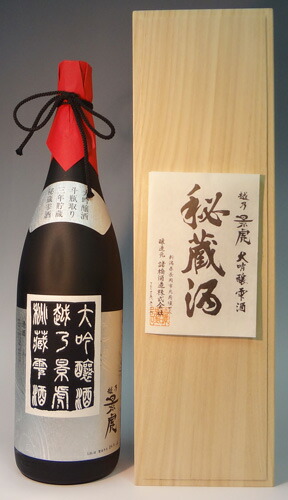 大吟醸酒
斗瓶取り
三年貯蔵
秘蔵雫酒
大吟醸酒
越乃景虎
秘藏雫酒
越乃
景虎
越乃景虎 大吟醸雫酒
秘蔵酒
醸造元 諸橋酒造株式会社